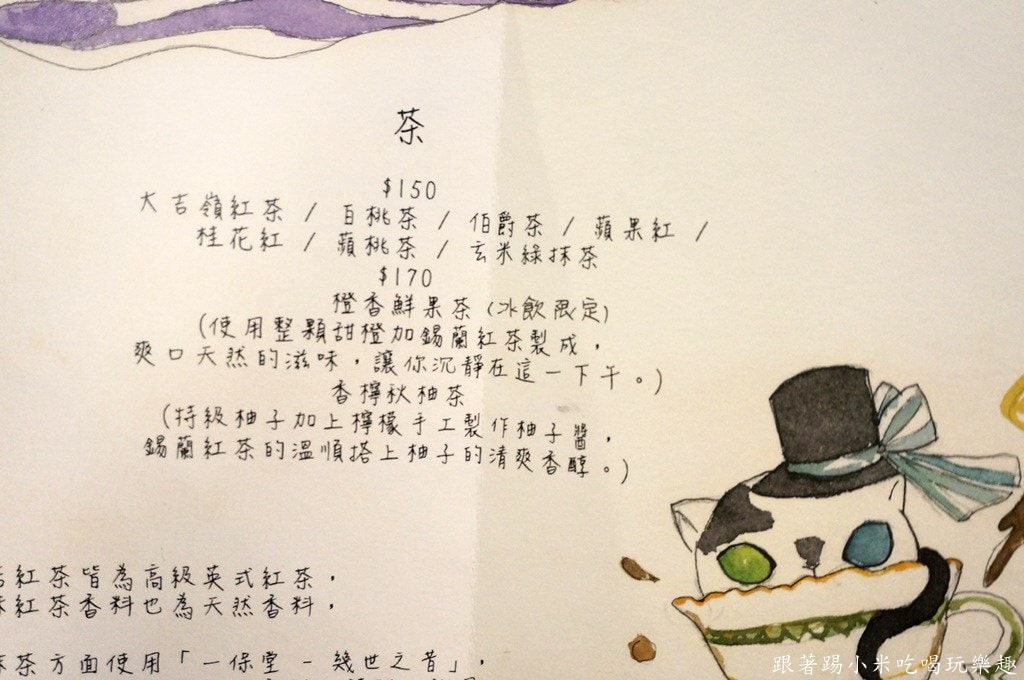 茶
$150
大吉嶺紅茶 / 白桃茶 / 伯爵茶 / 蘋果紅 /
桂花紅 / 蘋桃茶 / 玄米綠抹茶
$170
橙香鮮果茶(冰飲限定)
(使用整顆甜橙加錫蘭紅茶製成，
爽口天然的滋味，讓你沉靜在這一下午。)
香檸秋柚茶
(特級柚子加上檸檬手工製作柚子醬，
錫蘭紅茶的溫順搭上柚子的清爽香醇。)
紅茶皆為高級英式紅茶，
紅茶香料也為天然香料，
茶方面使用「一保堂 - 幾世之昔」，
跟著踢小米吃喝玩樂趣